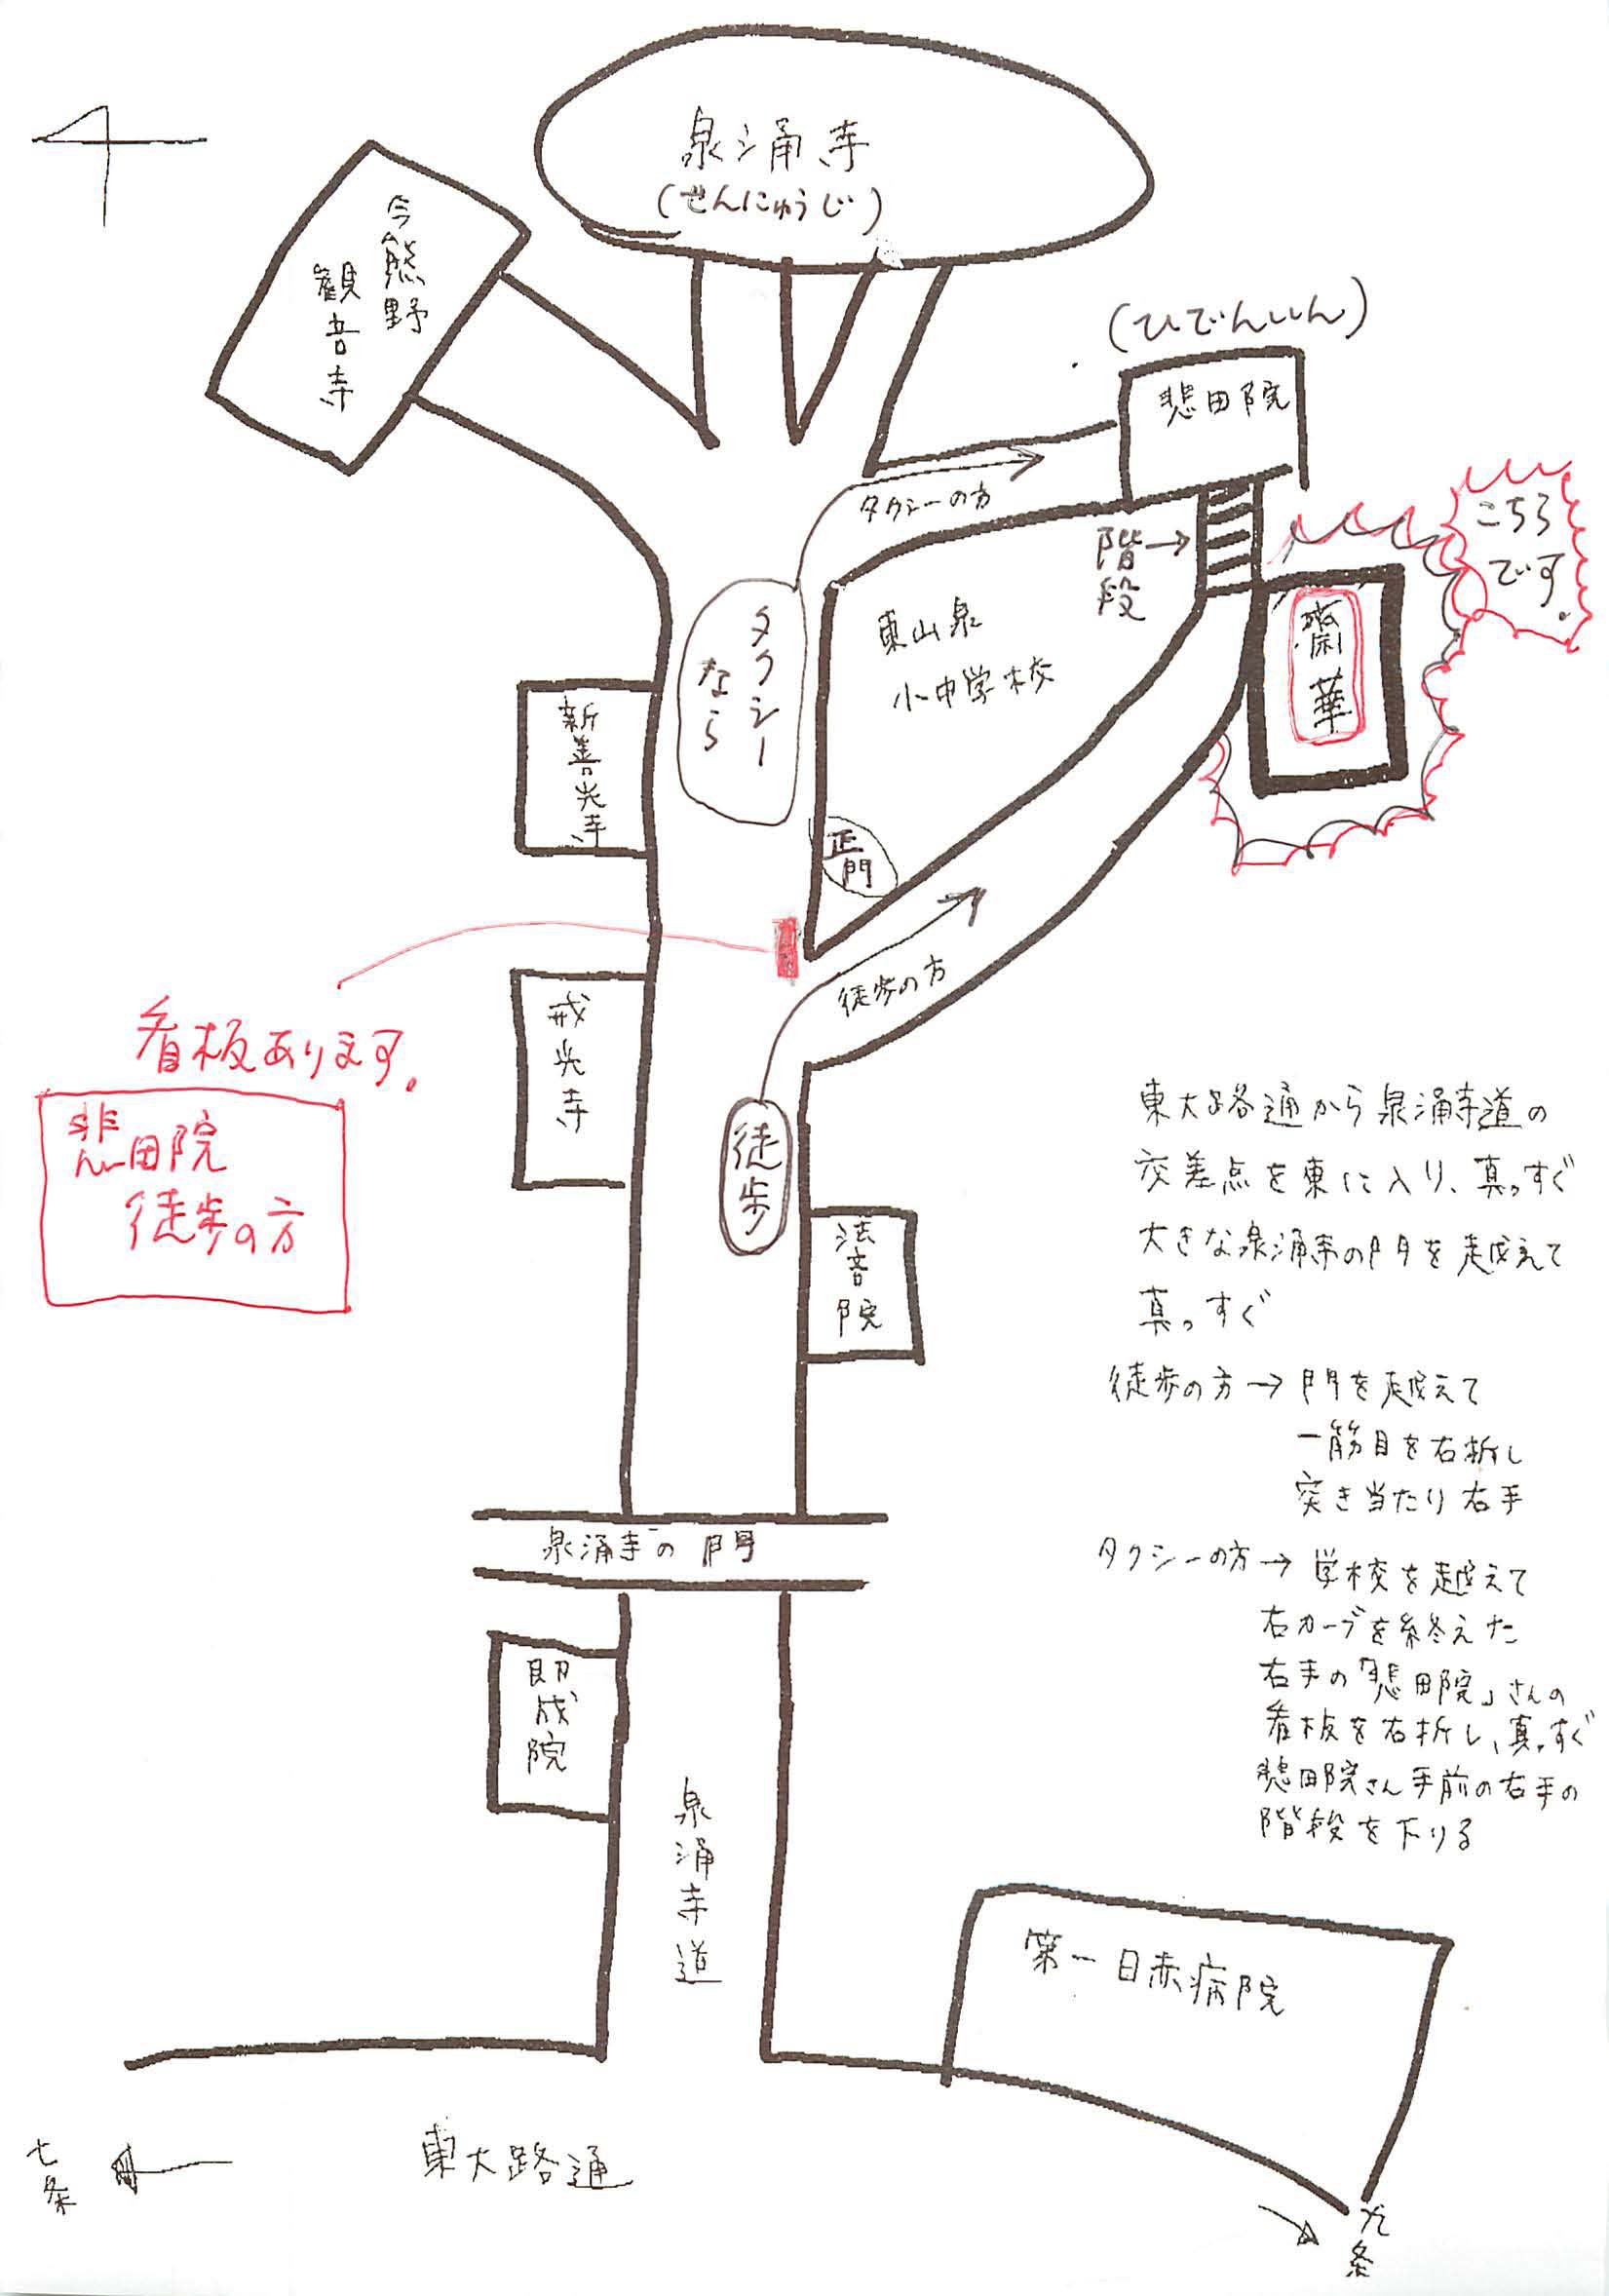 泉涌寺
(せんにゅうじ)
今熊野
観音寺
(ひでんいん)
悲田院
タクシーの方
階段→
こちら
です。
齋華
東山泉
小中学校
タクシー
なら
新善光寺
正門
徒歩の方
看板あります。
悲田院
徒歩の方
戒光寺
徒歩
法音院
東大路通から泉涌寺道の
交差点を東に入り、真っすぐ
大きな泉涌寺の門を越えて
真っすぐ
徒歩の方→門を越えて
一筋目を右折し
突き当たり右手
タクシーの方→学校を越えて
右カーブを終えた
右手の「悲田院」さんの
看板を右折し、真っすぐ
悲田院さん手前の右手の
階段を下りる
泉涌寺の門
即成院
泉涌寺道
第一日赤病院
七条
東大路通
九条